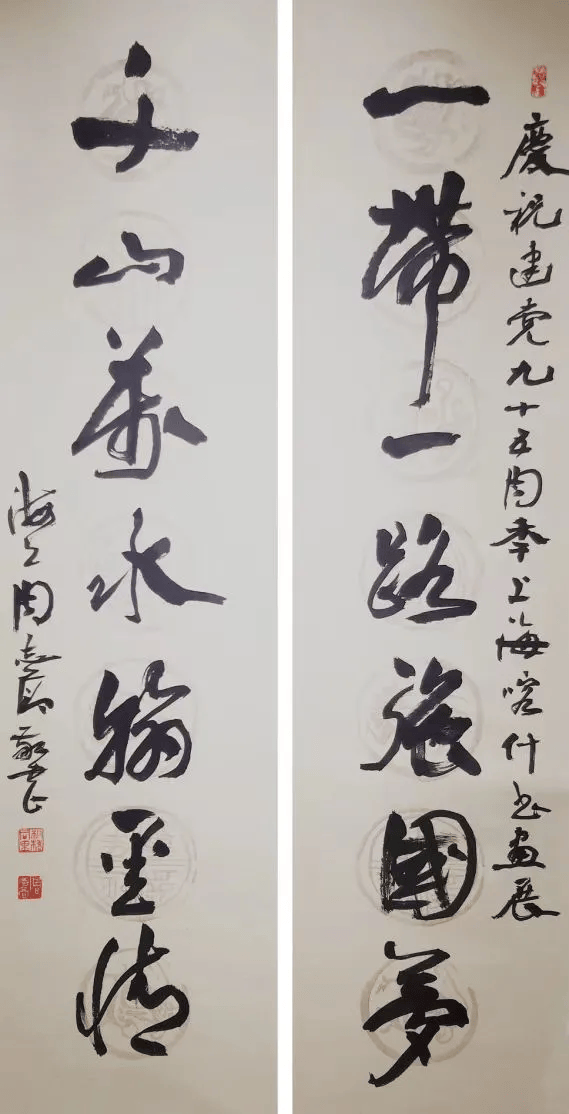 慶祝建党九十五周年上海喀什书畫展
一帶一路強國夢
千山萬水翰墨情
海上周志敬书